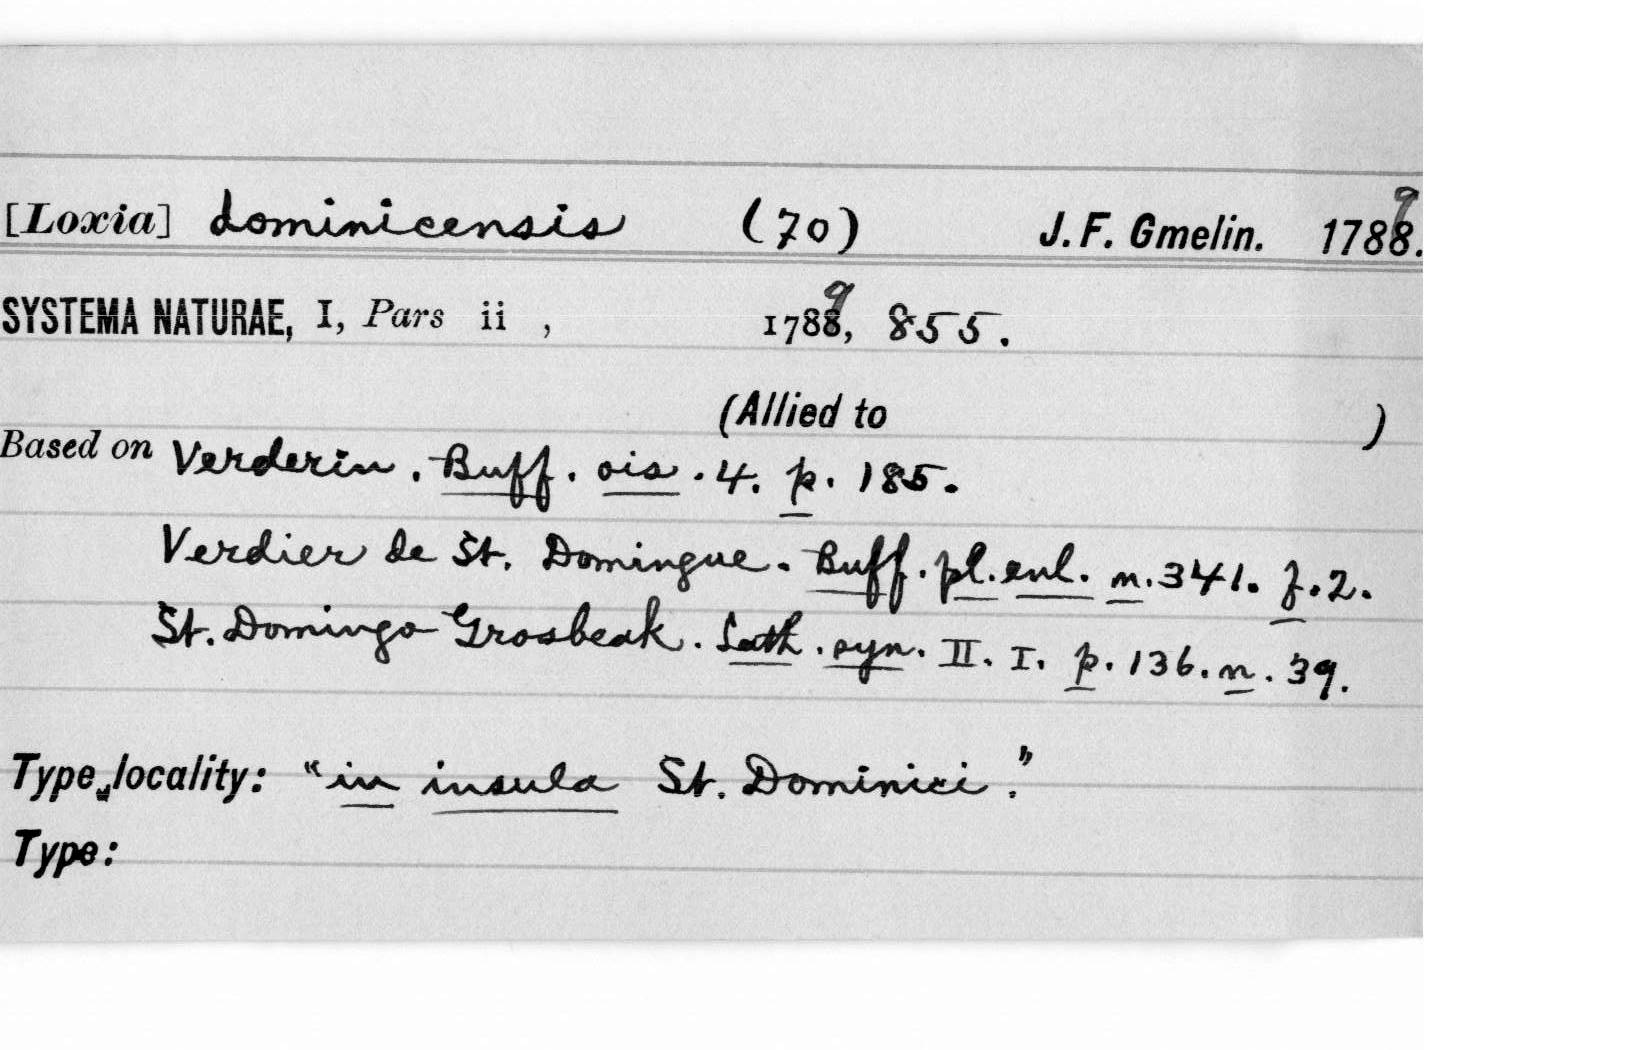 [Loxia] dominicensis (70) J. F. Gmelin. 1789.
SYSTEMA NATURAE, I, Pars ii , 1789, 855.
(Allied to )
Based on Verderin. Buff. ois. 4. p. 185.
Verdier de St. Domingue. Buff. pl. enl. n. 341. f. 2.
St. Domingo Grosbeak. Lath. syn. II. I. p. 136. n. 39.
Type locality: "in insula St. Dominici."
Type: